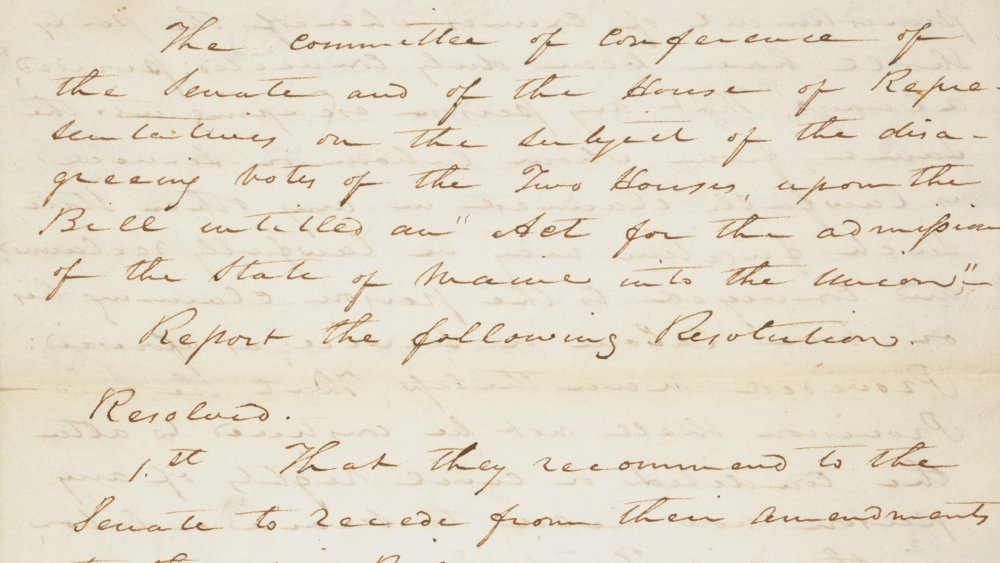 The committee of conference of
the Senate and of the House of Repre-
sentatives, on the subject of the disa-
greeing votes of the Two Houses, upon the
Bill entitled an "Act for the admission
of the State of Maine into the Union,"
Report the following Resolution.
Resolved.
1.st That they recommend to the
Senate to recede from their amendments